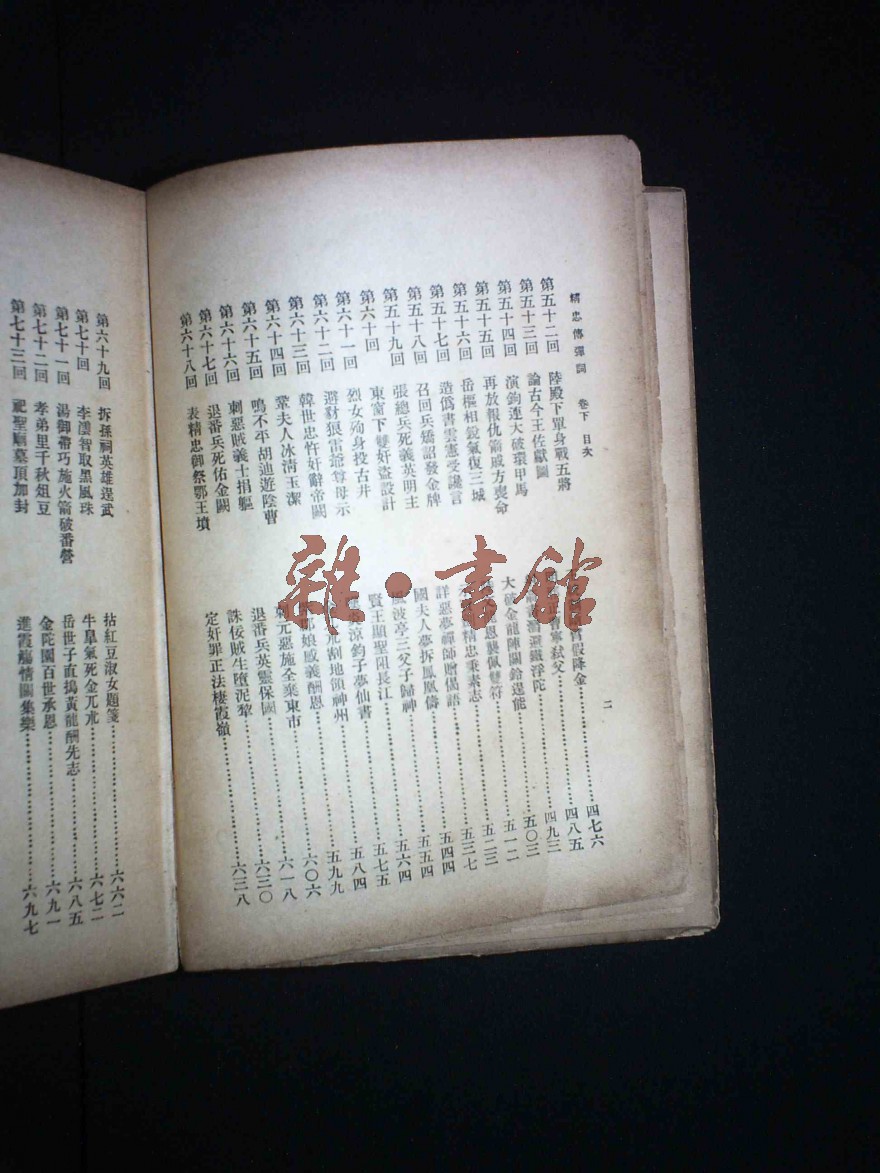 精忠傳彈詞 卷下 目次 二
第五十二回 陸殿下單身戰五將 假降金 四七六
第五十三回 論古今王佐獻圖 弒父 四八五
第五十四回 演鉤連大破環甲馬 鐵浮陀 四九三
第五十五回 再放報仇箭戚方喪命 大破金龍陣關鈴逞能 五〇三
第五十六回 岳樞相銳氣復三城 恩襲佩雙符 五一二
第五十七回 造僞書雲憲受讒言 精忠秉素志 五二三
第五十八回 召回兵矯詔發金牌 詳惡夢禪師贈偈語 五三七
第五十九回 張總兵死義英明主 國夫人夢拆鳳凰儔 五四四
第六十回 東窗下雙奸盜設計 風波亭三父子歸神 五五四
第六十一回 烈女殉身投古井 賢王顯聖阻長江 五六四
第六十二回 避豺狼雷爺尊母示 涼鈞子夢仙書 五七五
第六十三回 韓世忠忤奸辭帝闕 割地領神州 五八四
第六十四回 鞏夫人冰清玉潔 娘感義酬恩 五九九
第六十五回 鳴不平胡迪遊陰曹 刺元惡施全棄東市 六〇六
第六十六回 刺惡賊義士捐軀 退番兵英靈保國 六一八
第六十七回 退番兵死佑金闕 誅佞賊生墮泥犂 六二〇
第六十八回 表精忠御祭鄂王墳 定奸罪正法棲霞嶺 六二八
第六十九回 拆孫祠英雄逞武 拈紅豆淑女題箋 六六二
第七十回 李澐智取黑風珠 牛臯氣死金兀朮 六七二
第七十一回 湯御帶巧施火箭破番營 岳世子直搗黃龍酬先志 六八五
第七十二回 孝弟里千秋俎豆 金陀園百世承恩 六九一
第七十三回 祀聖廟墓頂加封 進霞觴情圓集樂 六九七
雜·書館